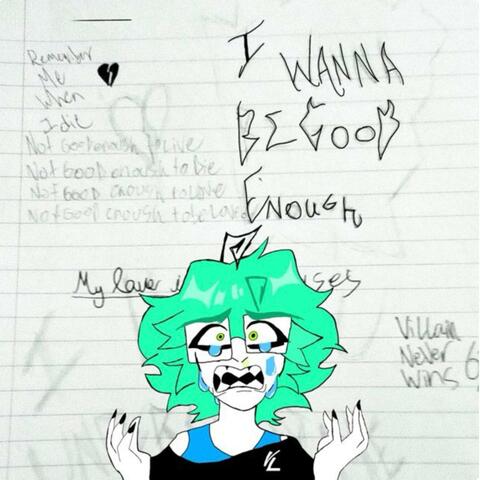 Remember
Me
When
I die
Not Good enough to live
Not Good enough to Die
Not Good enough to love
Not Good enough to be Loved
I WANNA
BE GOOD
ENOUGH
My love
Villain
Never
Wins
VL